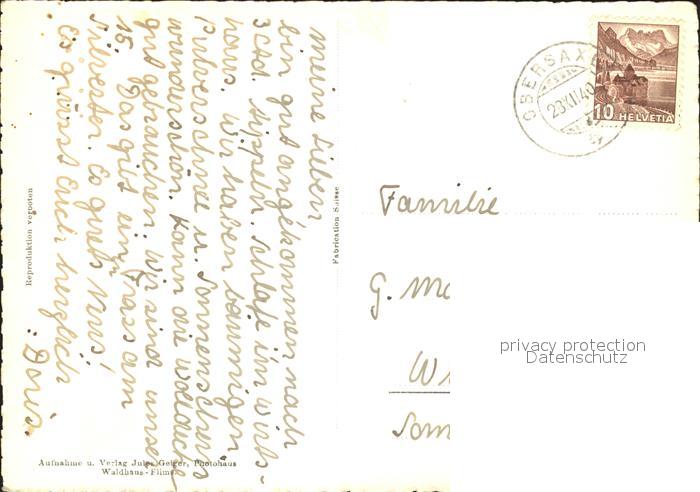 Meine Lieben
bin gut angekommen nach
3 Std. Schlafe im Wirts-
haus. Wir haben baumigen
Pulverschnee u. Sonnenschein
wunderschön. Kann die
gut gebrauchen. Wir sind unser
15. Das gibt ein am
Silvester. Es
Es grüsst Euch herzlich
Doris.
Reproduktion verboten
Fabrication Suisse
Aufnahme u. Verlag Jules Geiger, Photohaus
Waldhaus-Flims
OBERSAXEN
23.XII.40
10 HELVETIA
Familie
G. M
W
Som
privacy protection
Datenschutz